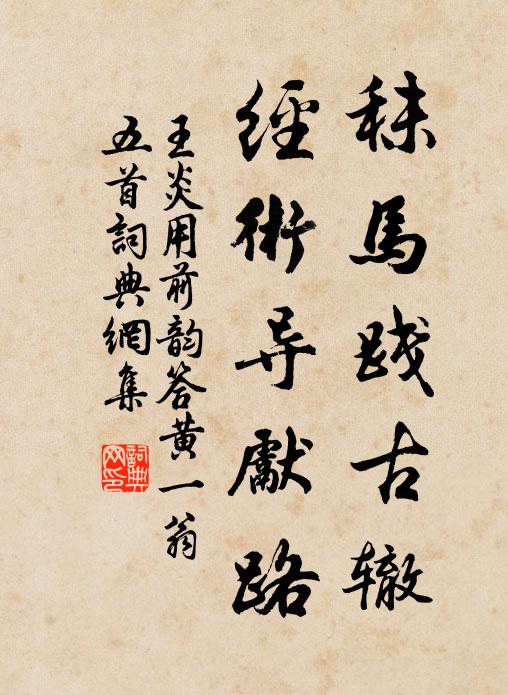 秣馬践古辙
經術导獻路
王炎用前韵答黄一翁
五首詞典網集
詞典网印